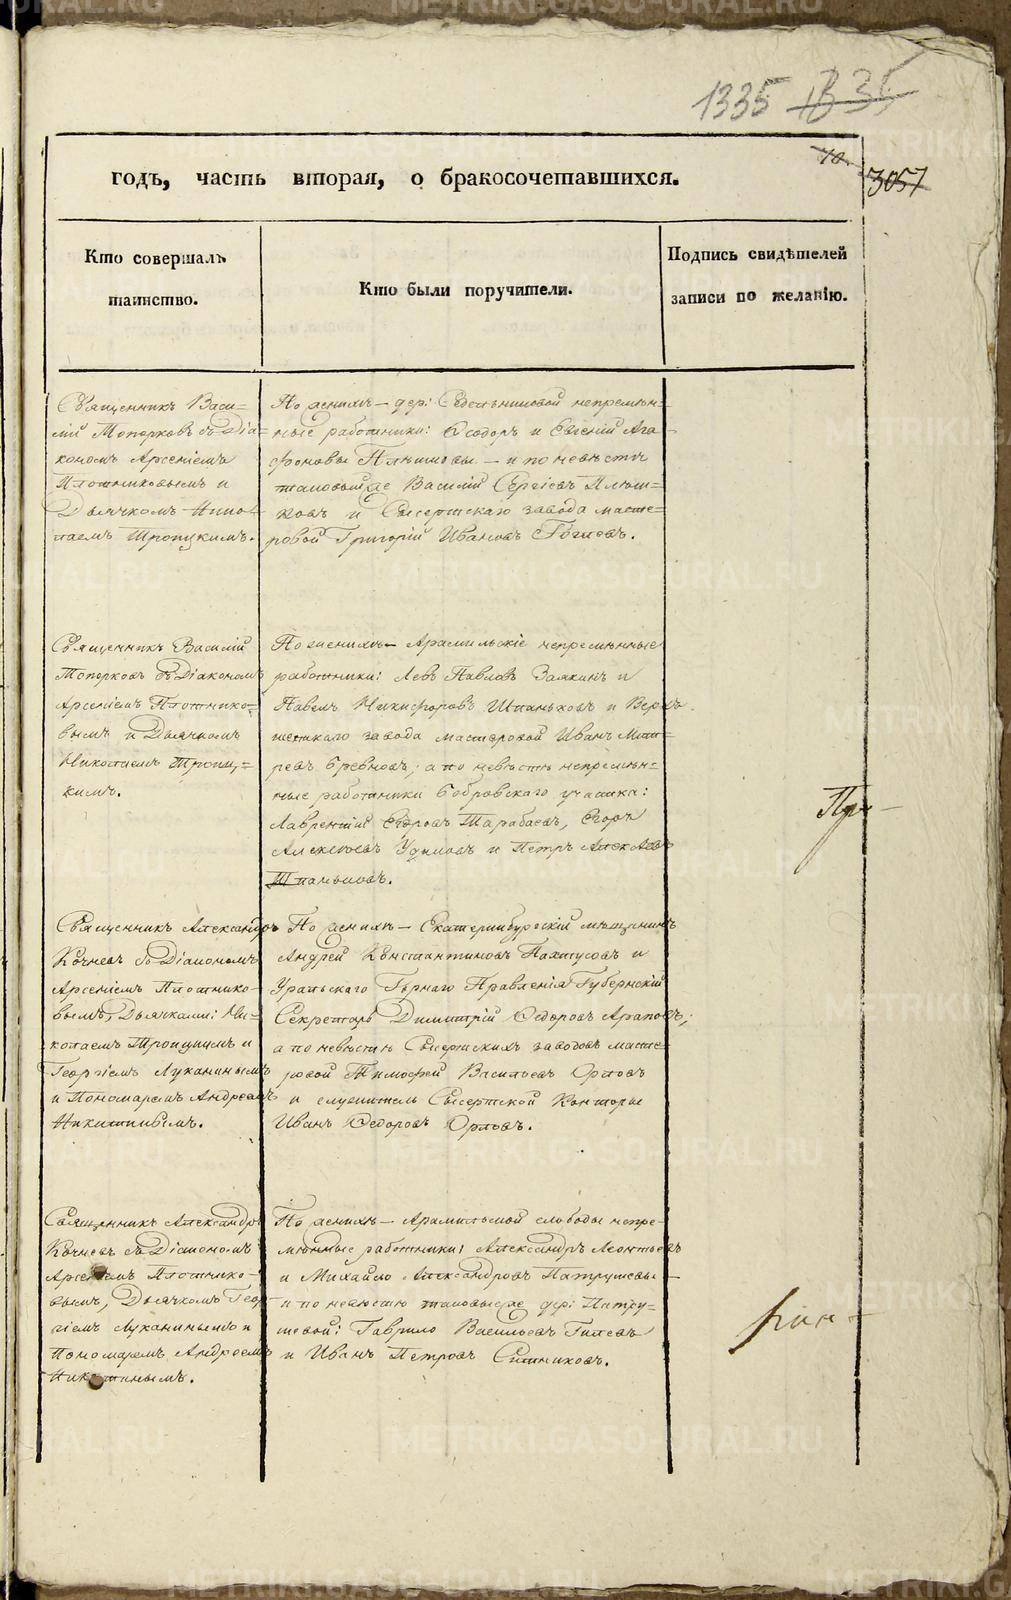 1335
10.
3057
годъ, часть вторая, о бракосочетавшихся.
Кто совершалъ
таинство.
Кто были поручители.
Подпись свидѣтелей
записи по желанію.
Священникъ Васи-
лій Топорковъ съ Діа=
кономъ Арсеніемъ
Плотниковымъ и
Дьячкомъ Нико-
лаемъ Троицкимъ.
По женихѣ – дер: непремѣн-
ные работники: Ѳеодоръ и Евгеній Ага-
фоновы – и по невѣстѣ
таковый же Василій Сергѣевъ Плюш=
ковъ и Сысертскаго завода масте-
ровой Григорій Ивановъ
Священникъ Василій
Топорковъ съ Діакономъ
Арсеніемъ Плотнико=
вымъ и Дьячкомъ
Николаемъ Троиц=
кимъ.
По женихѣ – Арамильскіе непремѣнные
работники: Левъ Павловъ Заякинъ и
Павелъ Никифоровъ Шпаньковъ и Верхъ-
заво­да мастеровой Иванъ
ревъ Бревновъ; а по невѣстѣ непремѣн-
ные работники Бобровскаго участка:
Лаврентій Ѳедоровъ Тарабаевъ, Егоръ
Алексѣевъ и Петръ
Священникъ Александръ
Кочневъ съ Діакономъ
Арсеніемъ Плотнико-
вымъ, Дьячками: Ни-
колаемъ Троицкимъ и
Георгіемъ Луканинымъ
и Пономаремъ Андреемъ
Никитинымъ.
По женихѣ – Екатеринбургскій мѣщанинъ
Андрей Константиновъ Пахтусовъ и
Уральскаго Горнаго Правленія Губернскій
Секретарь Димитрій Ѳедоровъ Араповъ;
а по невѣстѣ Сысертскихъ заводовъ масте-
ровой Тимофей Васильевъ Орловъ
и служитель Сысертской Конторы
Иванъ Ѳедоровъ Орловъ.
Священникъ Александръ
Кочневъ съ Діакономъ
Арсеніемъ Плотнико-
вымъ, Дьячкомъ Геор-
гіемъ Луканинымъ и
Пономаремъ Андреемъ
Никитинымъ.
По женихѣ – Арамильской слободы непре-
мѣнные работники: Александръ Леонтьевъ
и Михайло Александровъ Патрушевы –
и по невѣстѣ таковые же дер: Патру-
шевой: Гаврило Васильевъ Гилевъ
и Иванъ Петровъ Ситниковъ.
METRIKI.GASO-URAL.RU